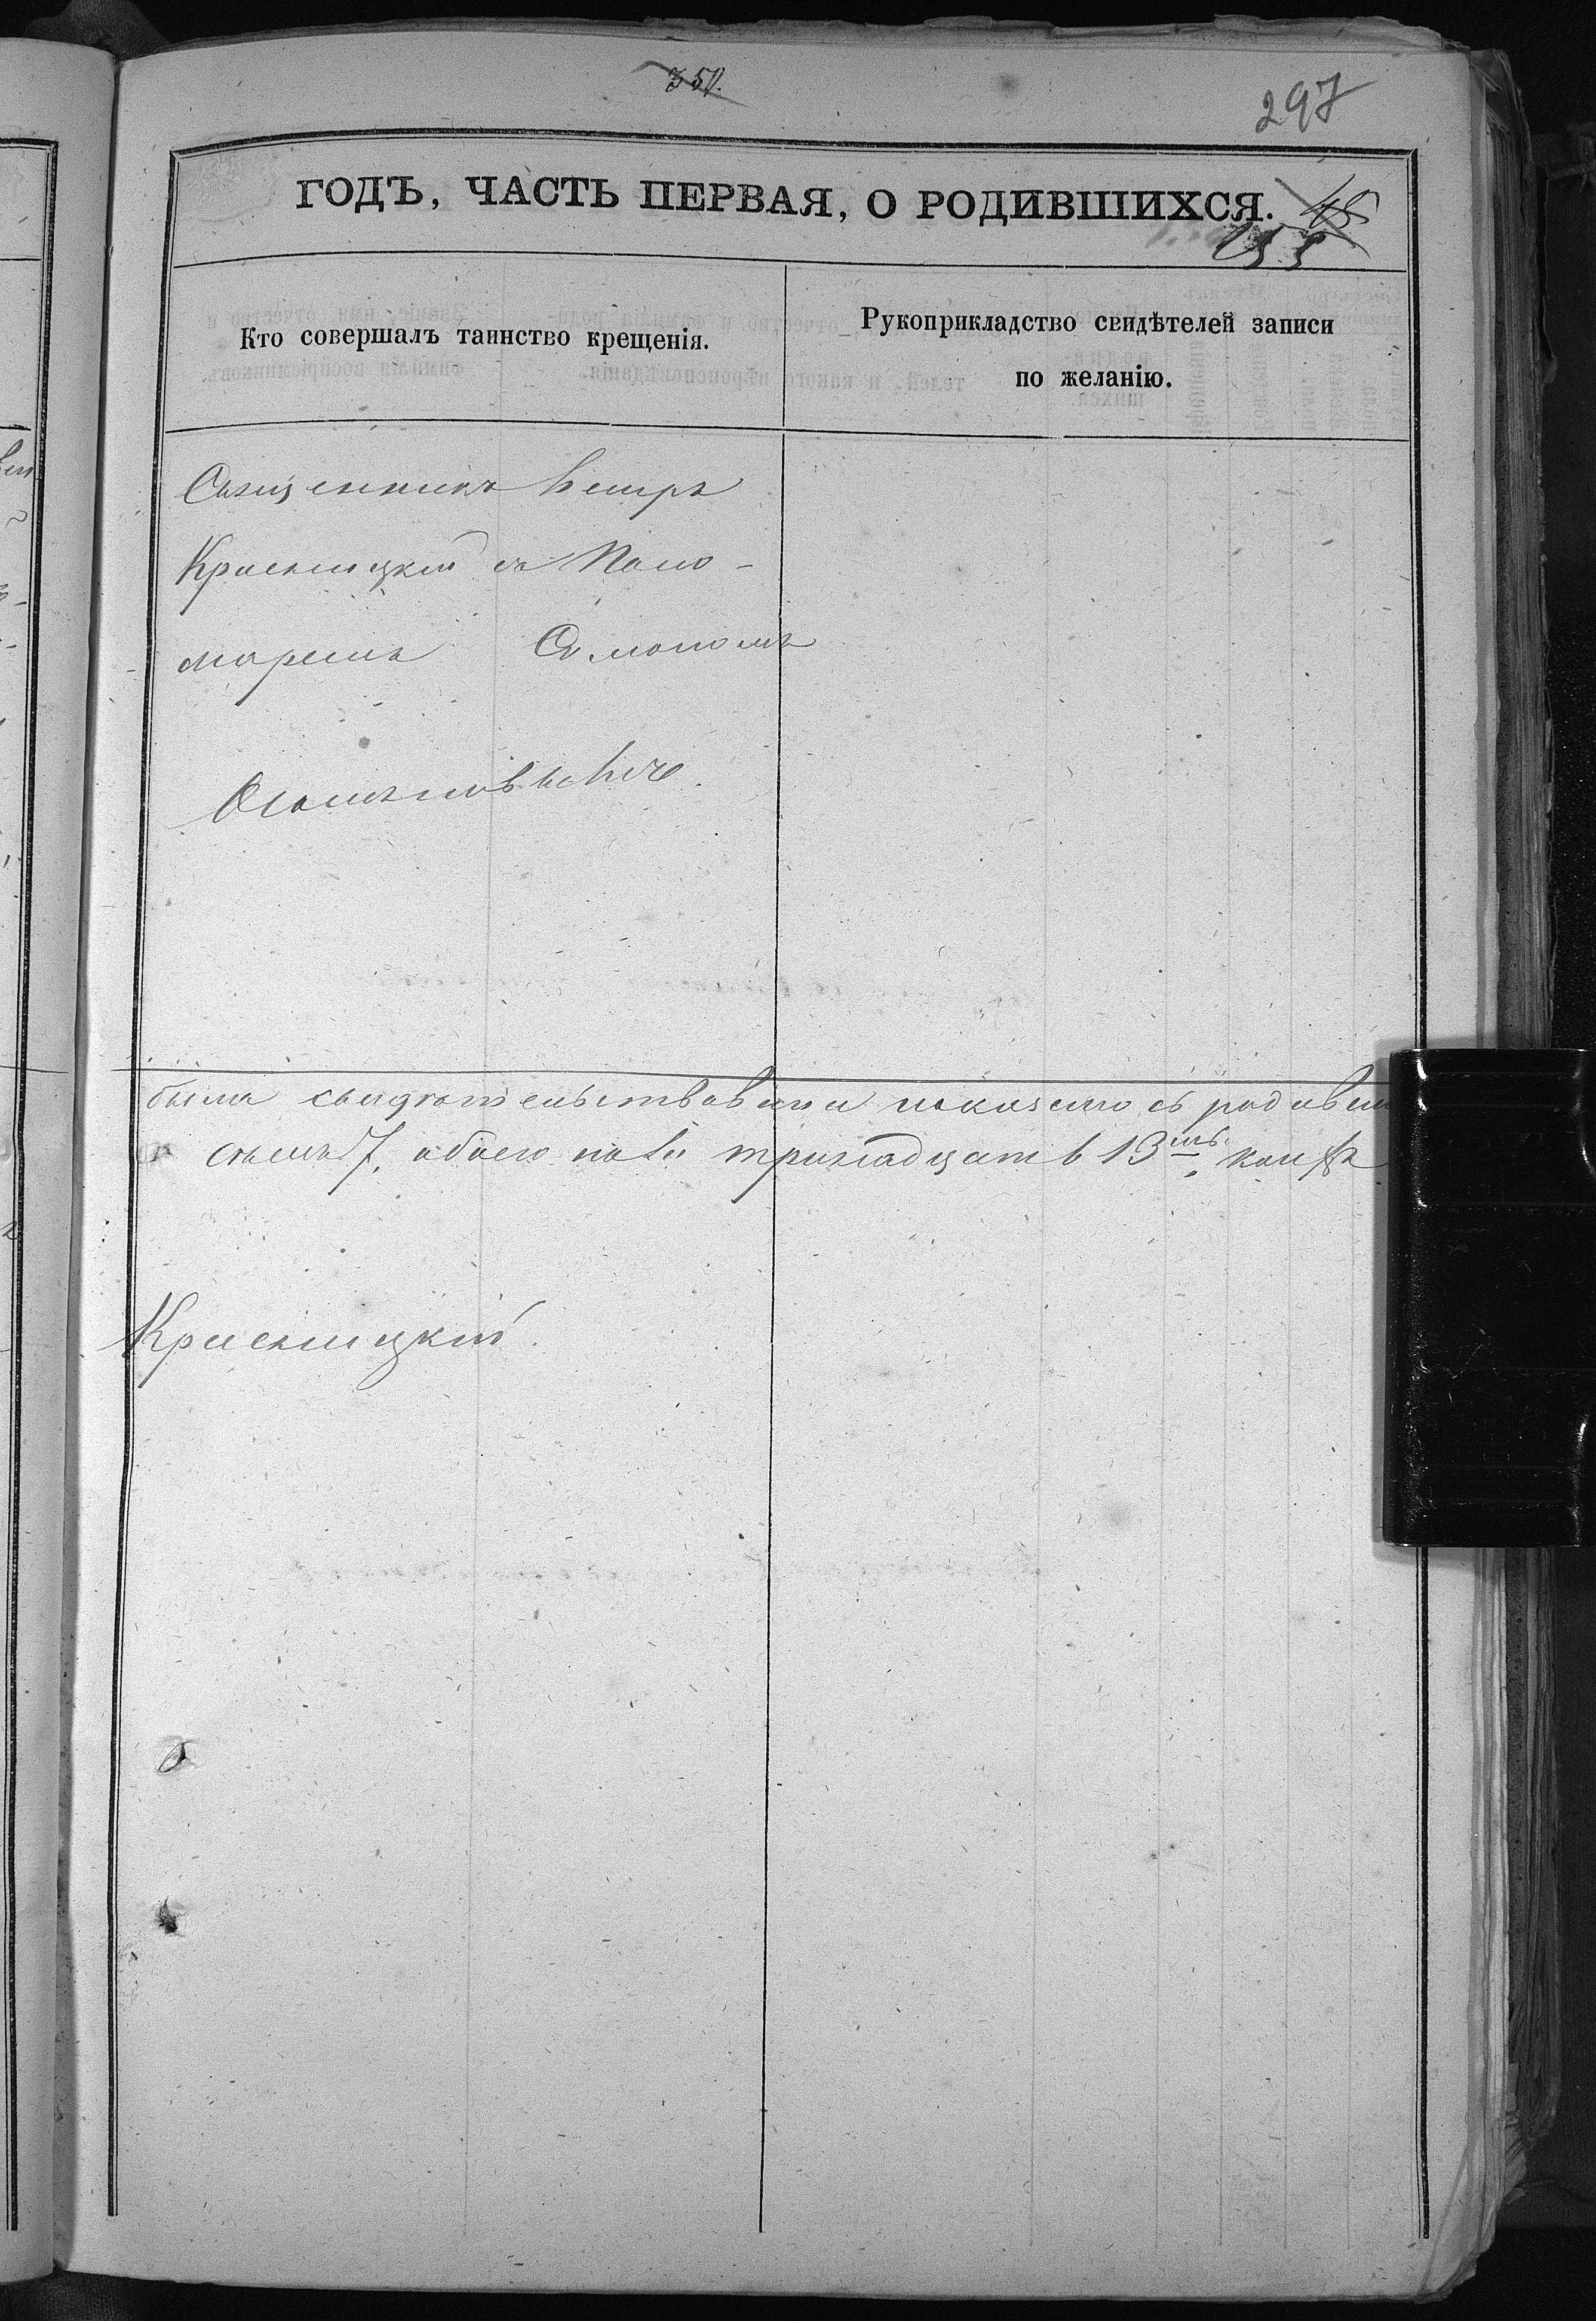 350.
297
ГОДЪ, ЧАСТЬ ПЕРВАЯ, О РОДИВШИХСЯ. 48
155
Кто совершалъ таинство крещенія.
Рукоприкладство свидѣтелей записи
по желанію.
Священникъ Петръ
Красницкій съ Поно-
маремъ
была свидѣтельствована и показано, въ родив
семь 7, обоего пола тринадцать 13ть,
Красницкій.